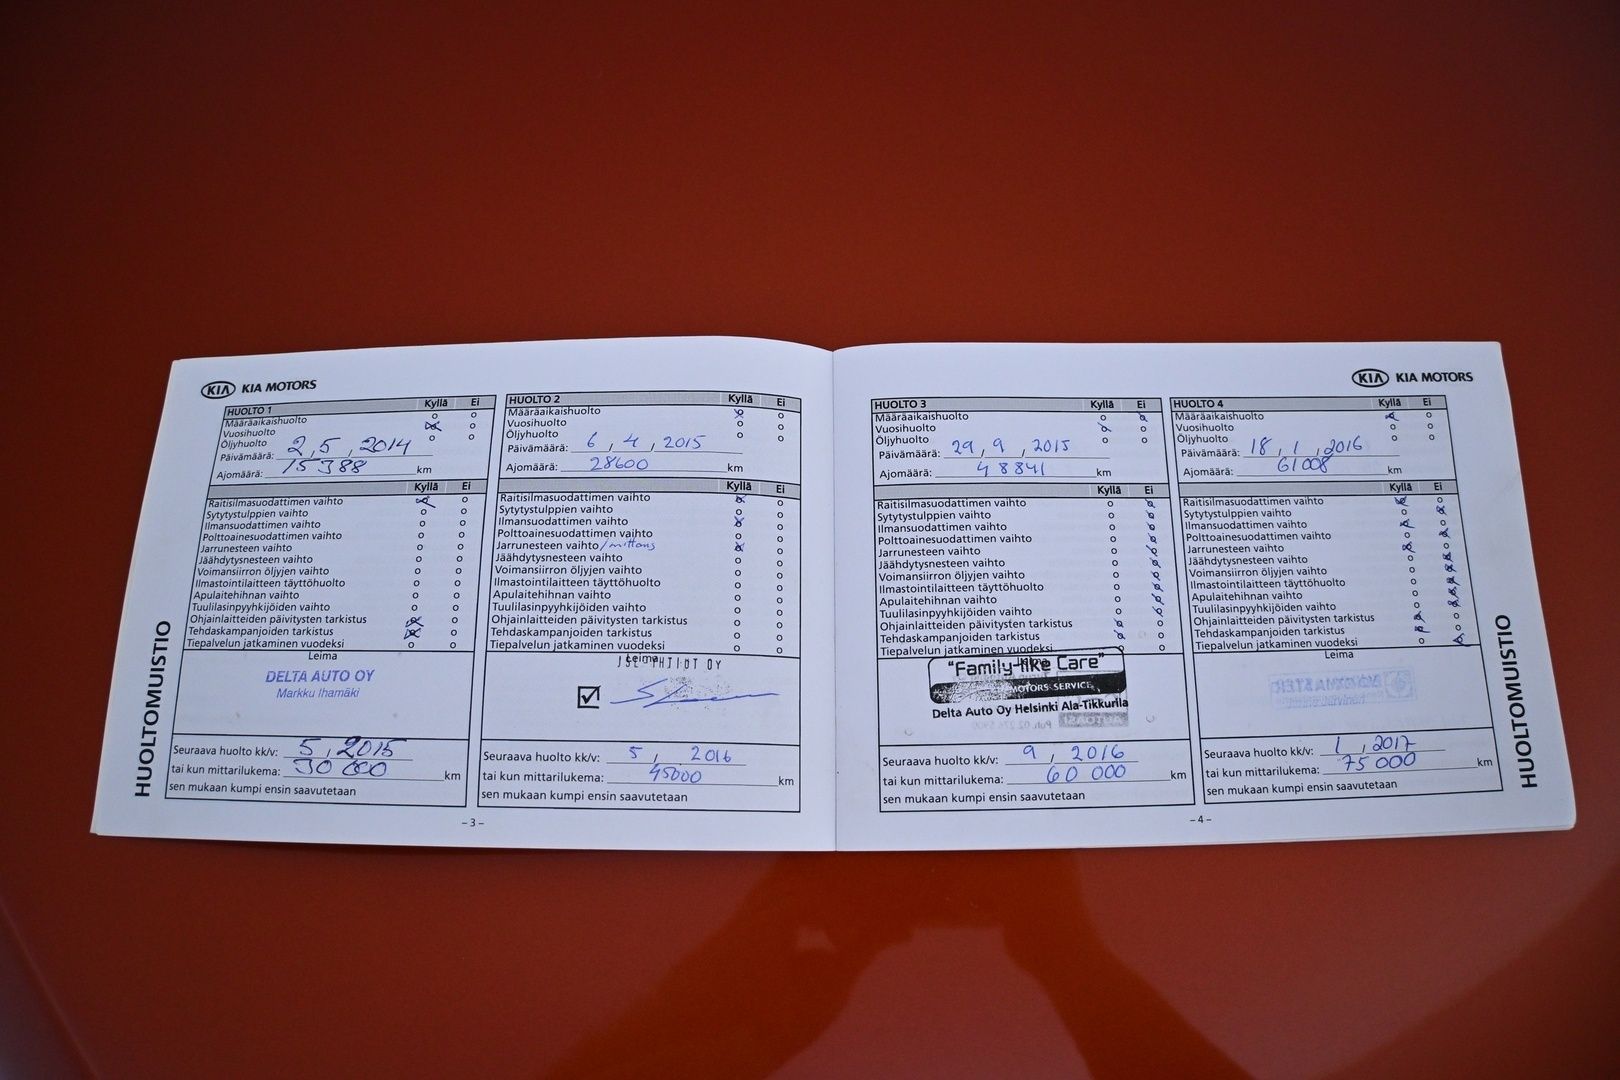 KIA KIA MOTORS
HUOLTOMUISTIO
HUOLTO 1 Kyllä Ei
Määräaikaishuolto
Vuosihuolto
Öljyhuolto
Päivämäärä: 2,5,2014
Ajomäärä: 15388 km
Kyllä Ei
Raitisilmasuodattimen vaihto
Sytytystulppien vaihto
Ilmansuodattimen vaihto
Polttoainesuodattimen vaihto
Jarrunesteen vaihto
Jäähdytysnesteen vaihto
Voimansiirron öljyjen vaihto
Ilmastointilaitteen täyttöhuolto
Apulaitehihnan vaihto
Tuulilasinpyyhkijöiden vaihto
Ohjainlaitteiden päivitysten tarkistus
Tehdaskampanjoiden tarkistus
Tiepalvelun jatkaminen vuodeksi
Leima
DELTA AUTO OY
Markku Ihamäki
Seuraava huolto kk/v: 5, 2015
tai kun mittarilukema: 30 000 km
sen mukaan kumpi ensin saavutetaan
HUOLTO 2 Kyllä Ei
Määräaikaishuolto
Vuosihuolto
Öljyhuolto
Päivämäärä: 6, 4, 2015
Ajomäärä: 28600 km
Kyllä Ei
Raitisilmasuodattimen vaihto
Sytytystulppien vaihto
Ilmansuodattimen vaihto
Polttoainesuodattimen vaihto
Jarrunesteen vaihto /mittaus
Jäähdytysnesteen vaihto
Voimansiirron öljyjen vaihto
Ilmastointilaitteen täyttöhuolto
Apulaitehihnan vaihto
Tuulilasinpyyhkijöiden vaihto
Ohjainlaitteiden päivitysten tarkistus
Tehdaskampanjoiden tarkistus
Tiepalvelun jatkaminen vuodeksi
Leima
OY
Seuraava huolto kk/v: 5, 2016
tai kun mittarilukema: 45000 km
sen mukaan kumpi ensin saavutetaan
– 3 –
KIA KIA MOTORS
HUOLTO 3 Kyllä Ei
Määräaikaishuolto
Vuosihuolto
Öljyhuolto
Päivämäärä: 29, 9, 2015
Ajomäärä: 48841 km
Kyllä Ei
Raitisilmasuodattimen vaihto
Sytytystulppien vaihto
Ilmansuodattimen vaihto
Polttoainesuodattimen vaihto
Jarrunesteen vaihto
Jäähdytysnesteen vaihto
Voimansiirron öljyjen vaihto
Ilmastointilaitteen täyttöhuolto
Apulaitehihnan vaihto
Tuulilasinpyyhkijöiden vaihto
Ohjainlaitteiden päivitysten tarkistus
Tehdaskampanjoiden tarkistus
Tiepalvelun jatkaminen vuodeksi
Leima
"Family-like Care"
MOTORS SERVICE
Delta Auto Oy Helsinki Ala-Tikkurila
Seuraava huolto kk/v: 9, 2016
tai kun mittarilukema: 60 000 km
sen mukaan kumpi ensin saavutetaan
HUOLTO 4 Kyllä Ei
Määräaikaishuolto
Vuosihuolto
Öljyhuolto
Päivämäärä: 18, 1, 2016
Ajomäärä: 61008 km
Kyllä Ei
Raitisilmasuodattimen vaihto
Sytytystulppien vaihto
Ilmansuodattimen vaihto
Polttoainesuodattimen vaihto
Jarrunesteen vaihto
Jäähdytysnesteen vaihto
Voimansiirron öljyjen vaihto
Ilmastointilaitteen täyttöhuolto
Apulaitehihnan vaihto
Tuulilasinpyyhkijöiden vaihto
Ohjainlaitteiden päivitysten tarkistus
Tehdaskampanjoiden tarkistus
Tiepalvelun jatkaminen vuodeksi
Leima
Seuraava huolto kk/v: 1, 2017
tai kun mittarilukema: 75 000 km
sen mukaan kumpi ensin saavutetaan
– 4 –
HUOLTOMUISTIO